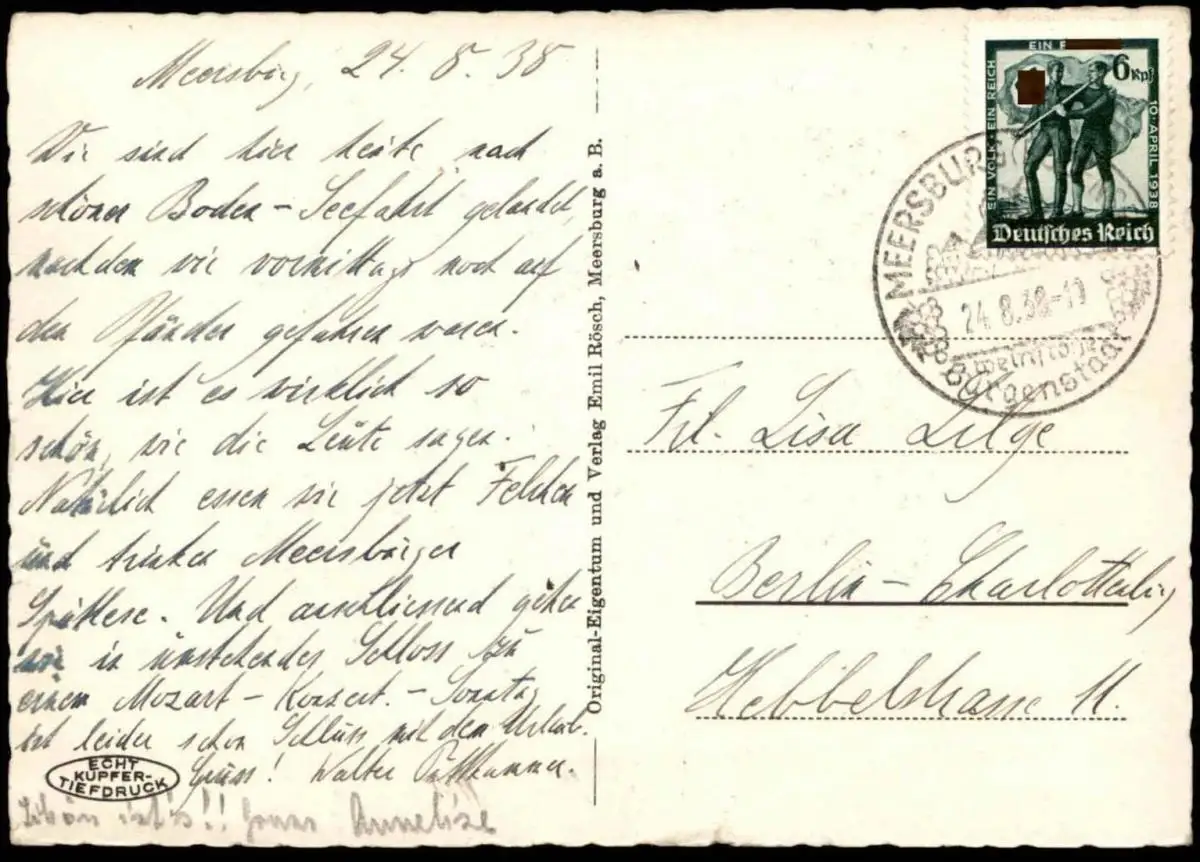 Meersburg, 24.8.38
Wir sind hier heute nach
schöner Boden-Seefahrt gelandet,
nachdem wir vormittags noch auf
den Pfänder gefahren waren.
Hier ist es wirklich so
schön, wie die Leute sagen.
Natürlich essen wir jetzt Felchen
und trinken Meersburger
Spätlese. Und anschliessend gehen
wir in umstehendes Schloss zu
einem Mozart-Konzert. - Sonntag
ist leider schon Schluss mit dem Urlaub.
Gruss! Walter Puttkammer.
Schön ist's!! Annelise
ECHT
KUPFER-
TIEFDRUCK
Original-Eigentum und Verlag Emil Rösch, Meersburg a. B.
EIN VOLK EIN REICH
EIN
6 Rpf
10. APRIL 1938
Deutsches Reich
MEERSBURG
24.8.38-19
Burgenstadt
Frl. Lisa Lilge
Berlin-Charlottenburg
Hebbelstrasse 11.